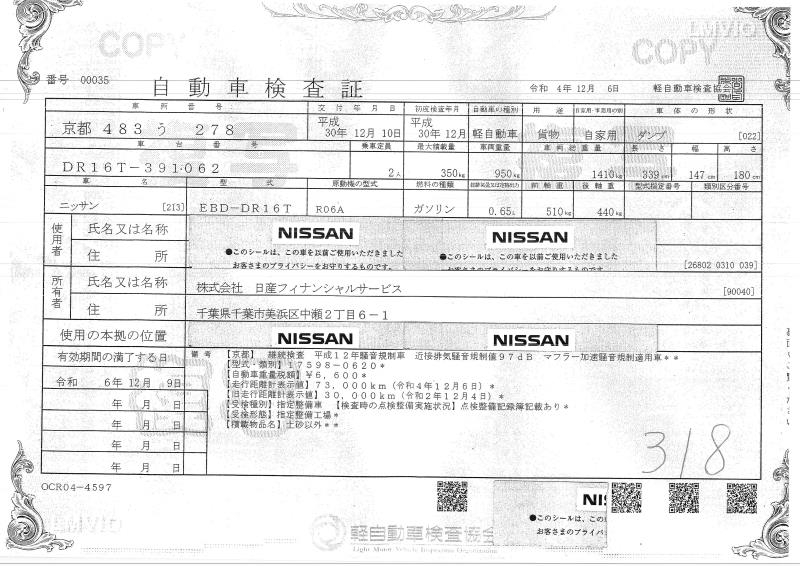 COPY
LMVIO
COPY
番号 00035
自動車検査証
令和 4年 12月 6日 軽自動車検査協会
車両番号 交付年月日 初度検査年月 自動車の種別 用途 自家用・事業用の別 車体の形状
京都 483 う 278 平成 30年 12月 10日 平成 30年 12月 軽自動車 貨物 自家用 ダンプ [022]
車台番号 乗車定員 最大積載量 車両重量 車両総重量 長さ 幅 高さ
DR16T-391062 2人 350kg 950kg 1410kg 339cm 147cm 180cm
車名 型式 原動機の型式 燃料の種類 総排気量又は定格出力 前軸重 後軸重 型式指定番号 類別区分番号
ニッサン [213] EBD-DR16T R06A ガソリン 0.65L 510kg 440kg
使用者 氏名又は名称
住所
NISSAN
●このシールは、この車を以前ご使用いただきました
お客さまのプライバシーをお守りするものです。
NISSAN
●このシールは、この車を以前ご使用いただきました
お客さまのプライバシーをお守りするものです。
[26802 0310 039]
所有者 氏名又は名称 株式会社 日産フィナンシャルサービス [90040]
住所 千葉県千葉市美浜区中瀬2丁目6-1
使用の本拠の位置 NISSAN NISSAN
有効期間の満了する日
令和 6年 12月 9日
年 月 日
年 月 日
年 月 日
年 月 日
備考 【京都】 継続検査 平成12年騒音規制車 近接排気騒音規制値97dB マフラー加速騒音規制適用車**
【型式・類別】17598-0620*
【自動車重量税額】¥6,600*
【走行距離計表示値】73,000km(令和4年12月6日)*
【旧走行距離計表示値】30,000km(令和2年12月4日)*
【受検種別】指定整備車 【検査時の点検整備実施状況】点検整備記録簿記載あり*
【受検形態】指定整備工場*
【積載物品名】土砂以外**
318
OCR04-4597
LMVIO
軽自動車検査協会
Light Motor Vehicle Inspection Organization
NIS
●このシールは、この
お客さまのプライバシ